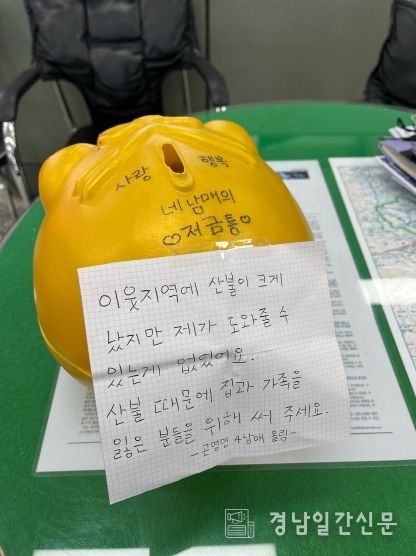 사랑
행복
네남매의
♡저금통♡
이웃지역에 산불이 크게
났지만 제가 도와줄 수
있는게 없었어요.
산불 때문에 집과 가족을
잃은 분들을 위해 써 주세요.
4남매 올림-
경남일간신문